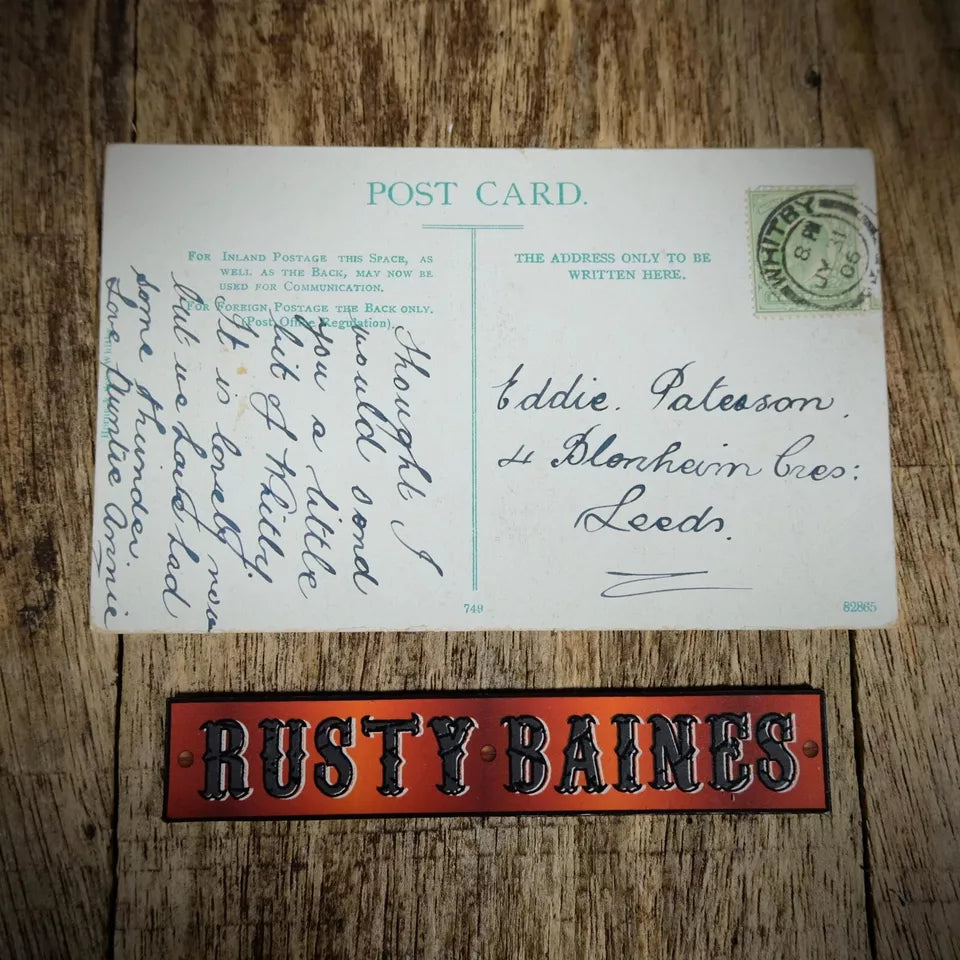 POST CARD.
FOR INLAND POSTAGE THIS SPACE, AS
WELL AS THE BACK, MAY NOW BE
USED FOR COMMUNICATION.
FOR FOREIGN POSTAGE THE BACK ONLY.
(Post Office Regulation).
THE ADDRESS ONLY TO BE
WRITTEN HERE.
WHITBY
8 PM
JY 31
06
Thought I
would send
you a little
bit of Whitby.
It is lovely now
but we have had
some thunder.
Love Auntie Annie
Eddie. Paterson.
4 Blenheim Cres:
Leeds.
749
82865
RUSTY BAINES